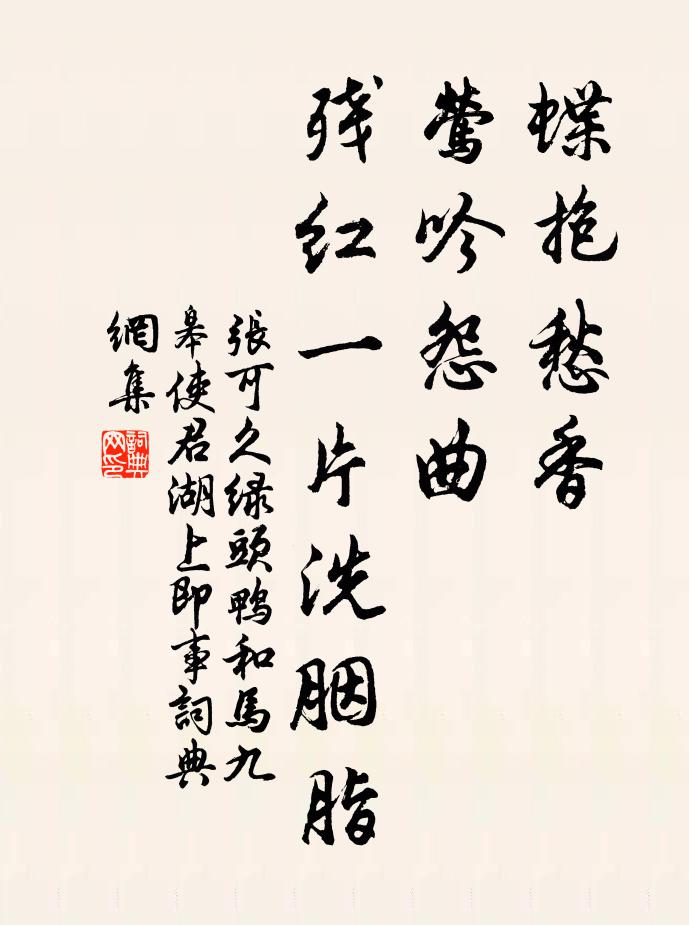 蝶抱愁香
莺吟怨曲
残红一片洗胭脂
張可久绿頭鴨和馬九
皋使君湖上即事詞典
網集
詞典
网印